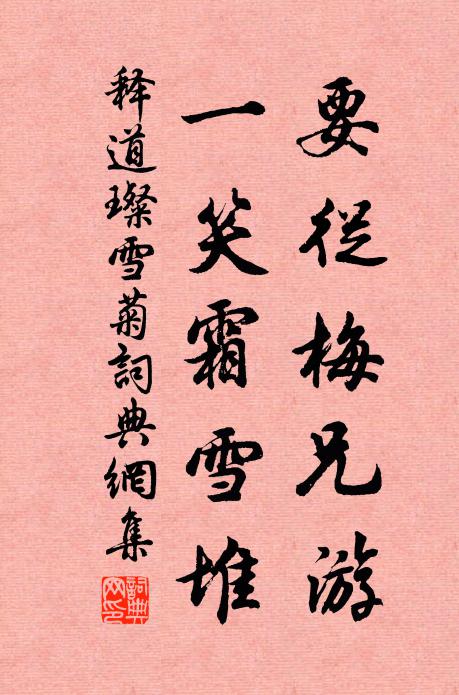 要從梅兄游
一笑霜雪堆
释道璨雪菊詞典網集
詞典网印